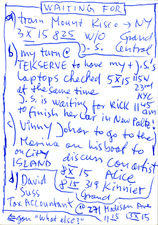 WAITING FOR
a) train Mount Kisco → NY
3 X 15 825 W/O Grand
J. S. Central
b) my turn @
TEKSERVE to have my + J.S.'s
Laptops checked 5 X 15 115W
at the same time 23rd
J.S. is waiting for Rick 1145
to finish her car in New Paltz am
c) Vinny Johar to go to the
Marina on his boat to
on CITY discuss con artist
ISLAND 8 X 15 Alice
d) David 815 319 Kinnier
Suss Grand
Tax Accountant @ 271 Madison Ave
upon "What else?" 1125 X 15